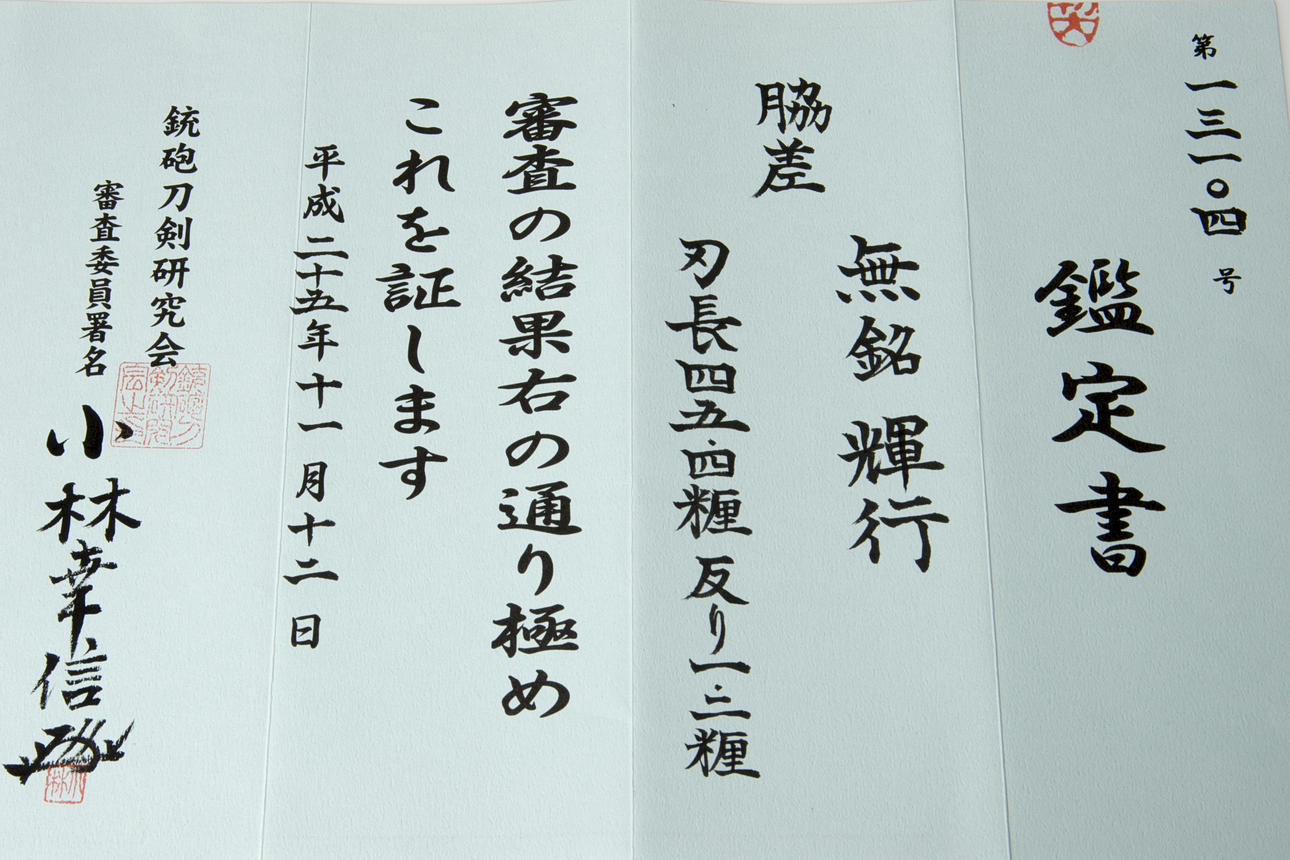 第一三一〇四号
鑑定書
脇差
無銘 輝行
刃長四五・四糎 反り一・二糎
審査の結果右の通り極め
これを証します
平成二十五年十一月十二日
銃砲刀剣研究会
審査委員署名
小林幸信